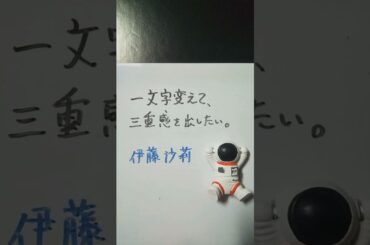 一文字変えて、
三重感を出したい。
伊藤沙莉